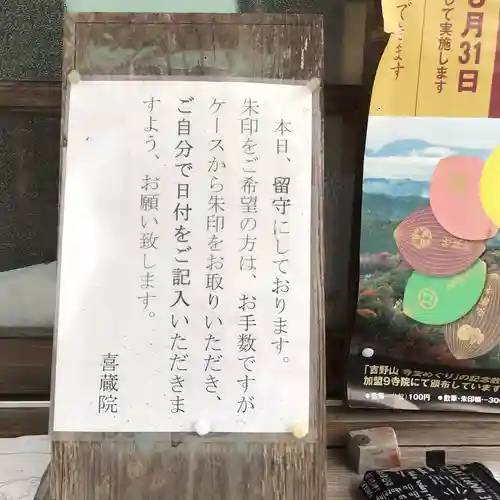 本日、留守にしております。
朱印をご希望の方は、お手数ですが
ケースから朱印をお取りいただき、
ご自分で日付をご記入いただきま
すよう、お願い致します。
喜蔵院
月31日
して実施します
できます
「吉野山
めぐり」の記念
加盟9寺院にて頒布しています
100円